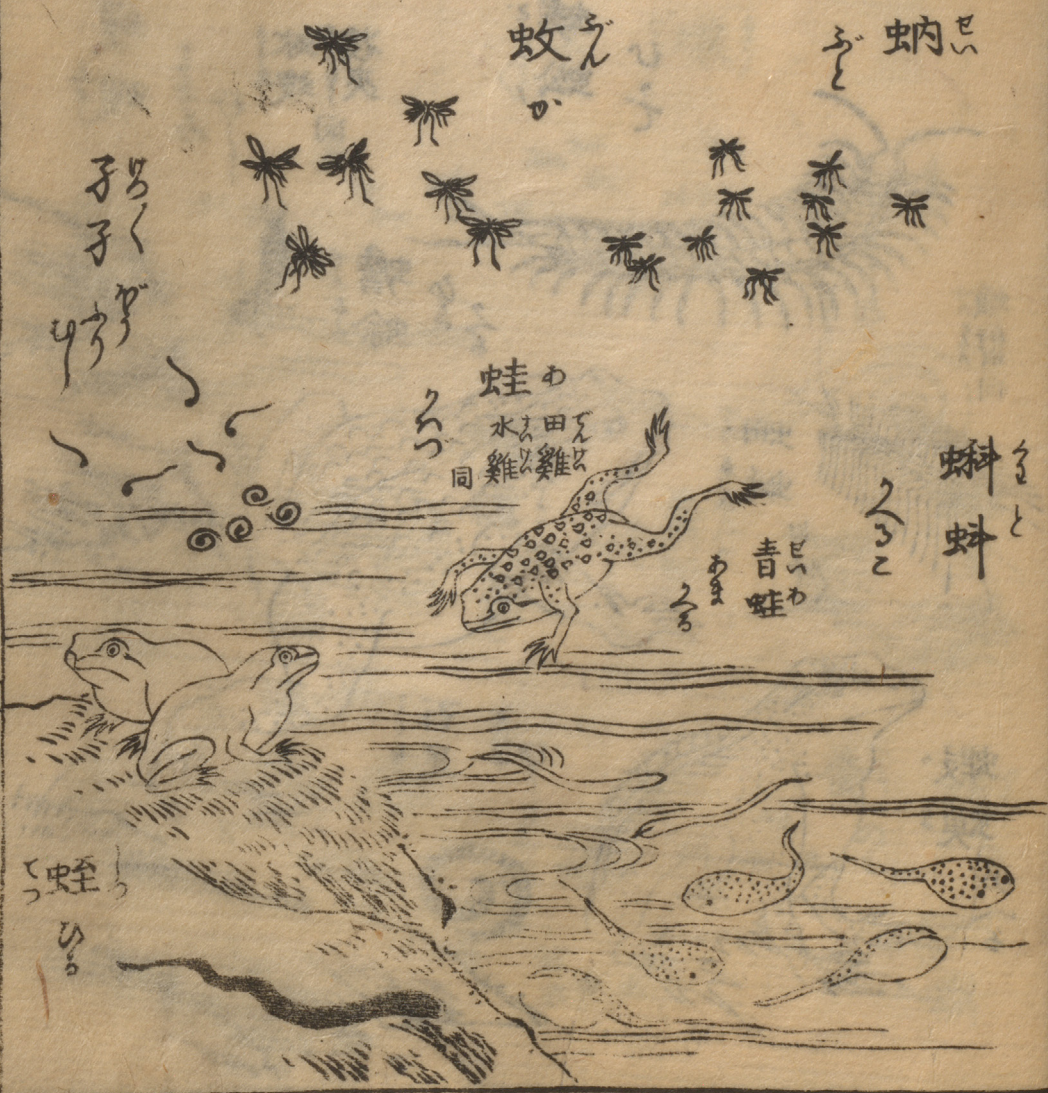 蚋 せい
ぶと
蚊 ぶん
か
孑孑 けつ〱
ぼう
ふり
むし
蛙 わ
田雞 でんけい
水雞 すいけい
同
かへづ
蝌蚪 くわと
かへるこ
青蛙 せいわ
あま
かへる
蛭 しつ
てつ
ひる